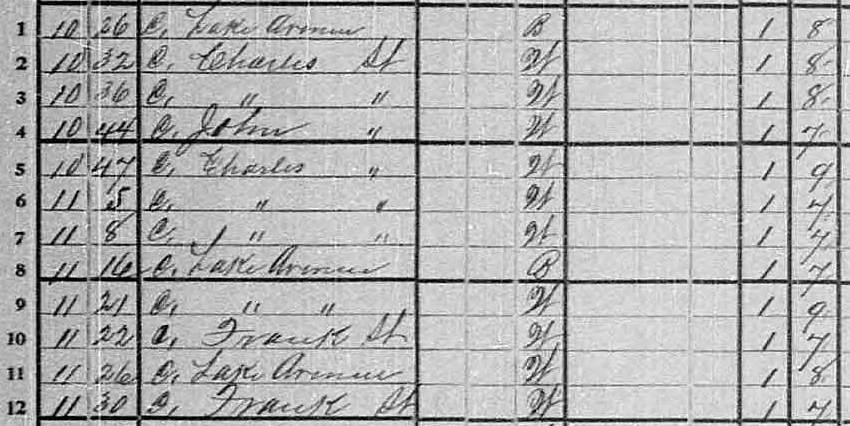 1 10 26 C. Lake Avenue B 1 8
2 10 32 C. Charles St W 1 8
3 10 36 C. " " W 1 8
4 10 44 C. John " W 1 7
5 10 47 C. Charles " W 1 9
6 11 5 C. " " W 1 7
7 11 8 C. " " W 1 7
8 11 16 C. Lake Avenue B 1 7
9 11 21 C. " " W 1 9
10 11 22 C. Frank St W 1 7
11 11 26 C. Lake Avenue W 1 8
12 11 30 C. Frank St W 1 7